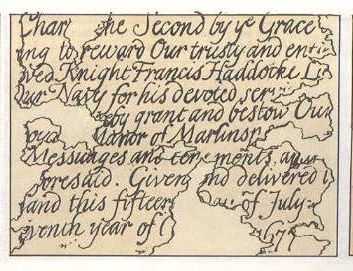 Char he Second by ye Grace
ng to reward Our trusty and en
ved Knight Francis Haddocke Li
ur Navy for his devoted ser
by grant and bestow Our
by Manor of Marlinsp
Messuages and ten ments app
foresaid. Given nd delivered
and this fifteen of July
venth year of